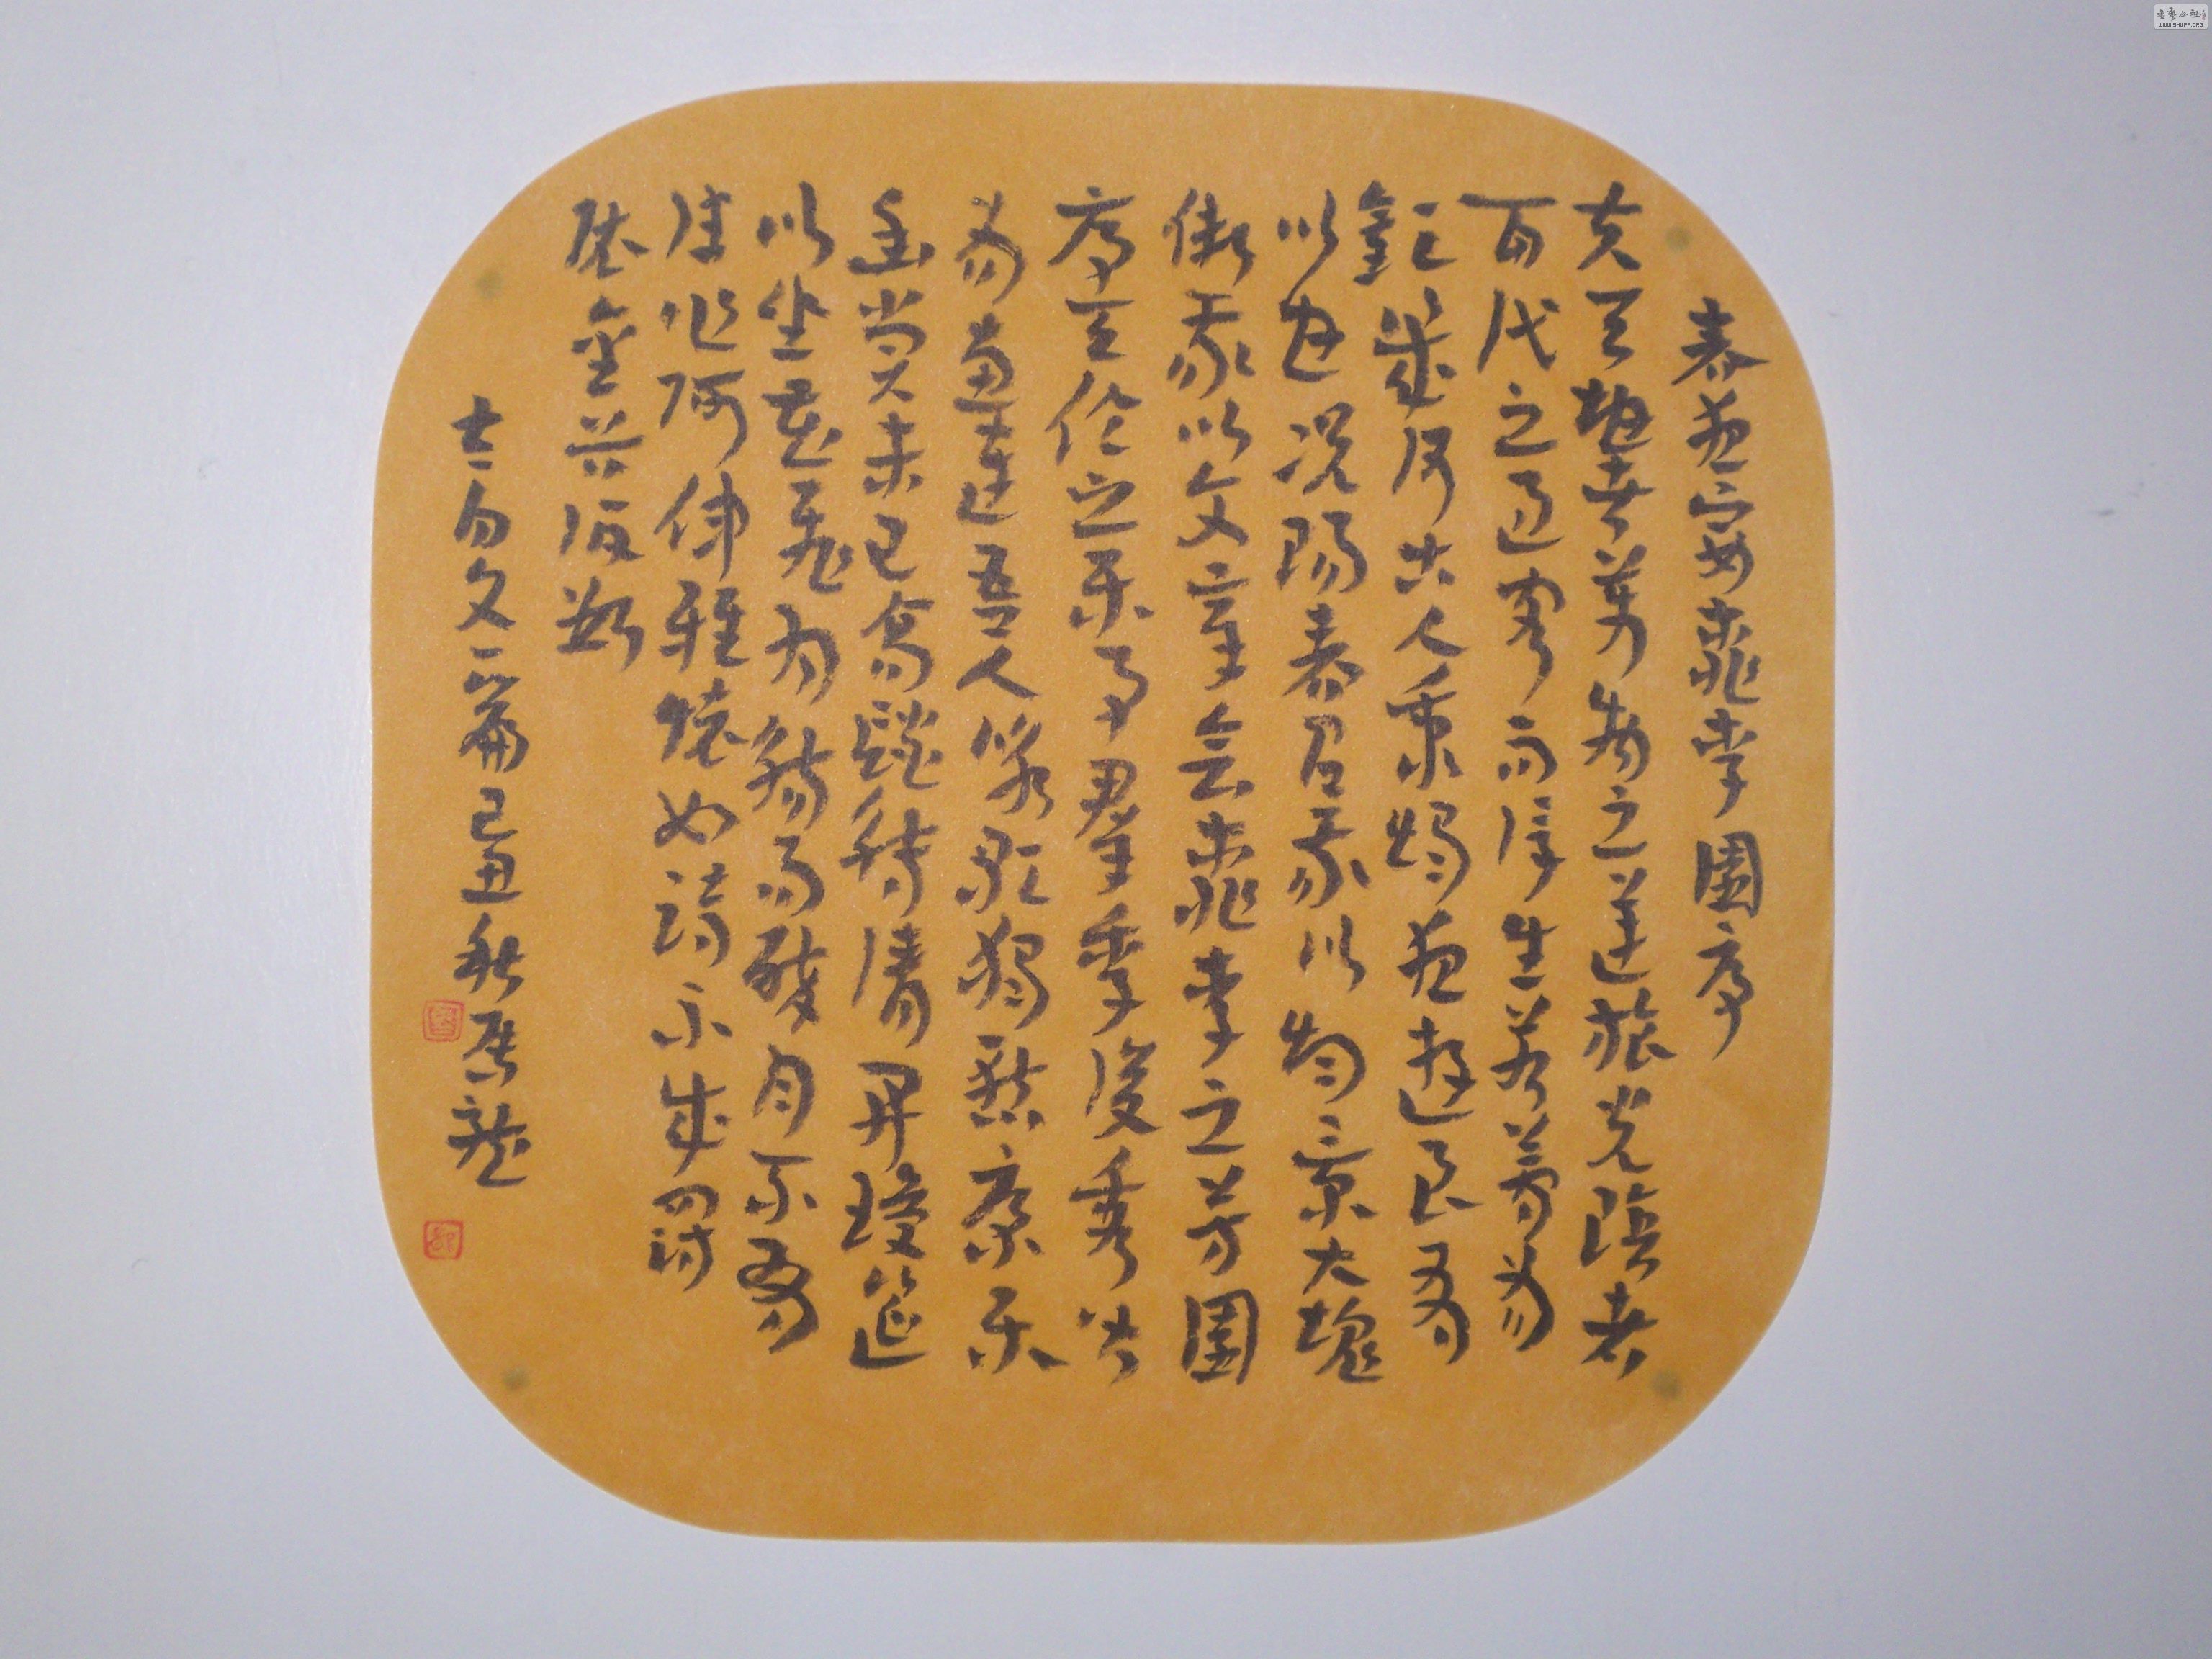 春夜宴桃李園序
夫天地者萬物之逆旅光陰者
百代之過客而浮生若夢為
歡幾何古人秉燭夜遊良有
以也况陽春召我以烟景大塊
假我以文章会桃李之芳園
序天伦之樂事群季俊秀皆
為惠連吾人詠歌獨慚康樂
幽賞未已高談轉清開瓊筵
以坐花飛羽觴而醉月不有
佳作何伸雅懷如詩不成罰
依金谷酒數
文一篇己丑秋
WWW.SHUFA.ORG